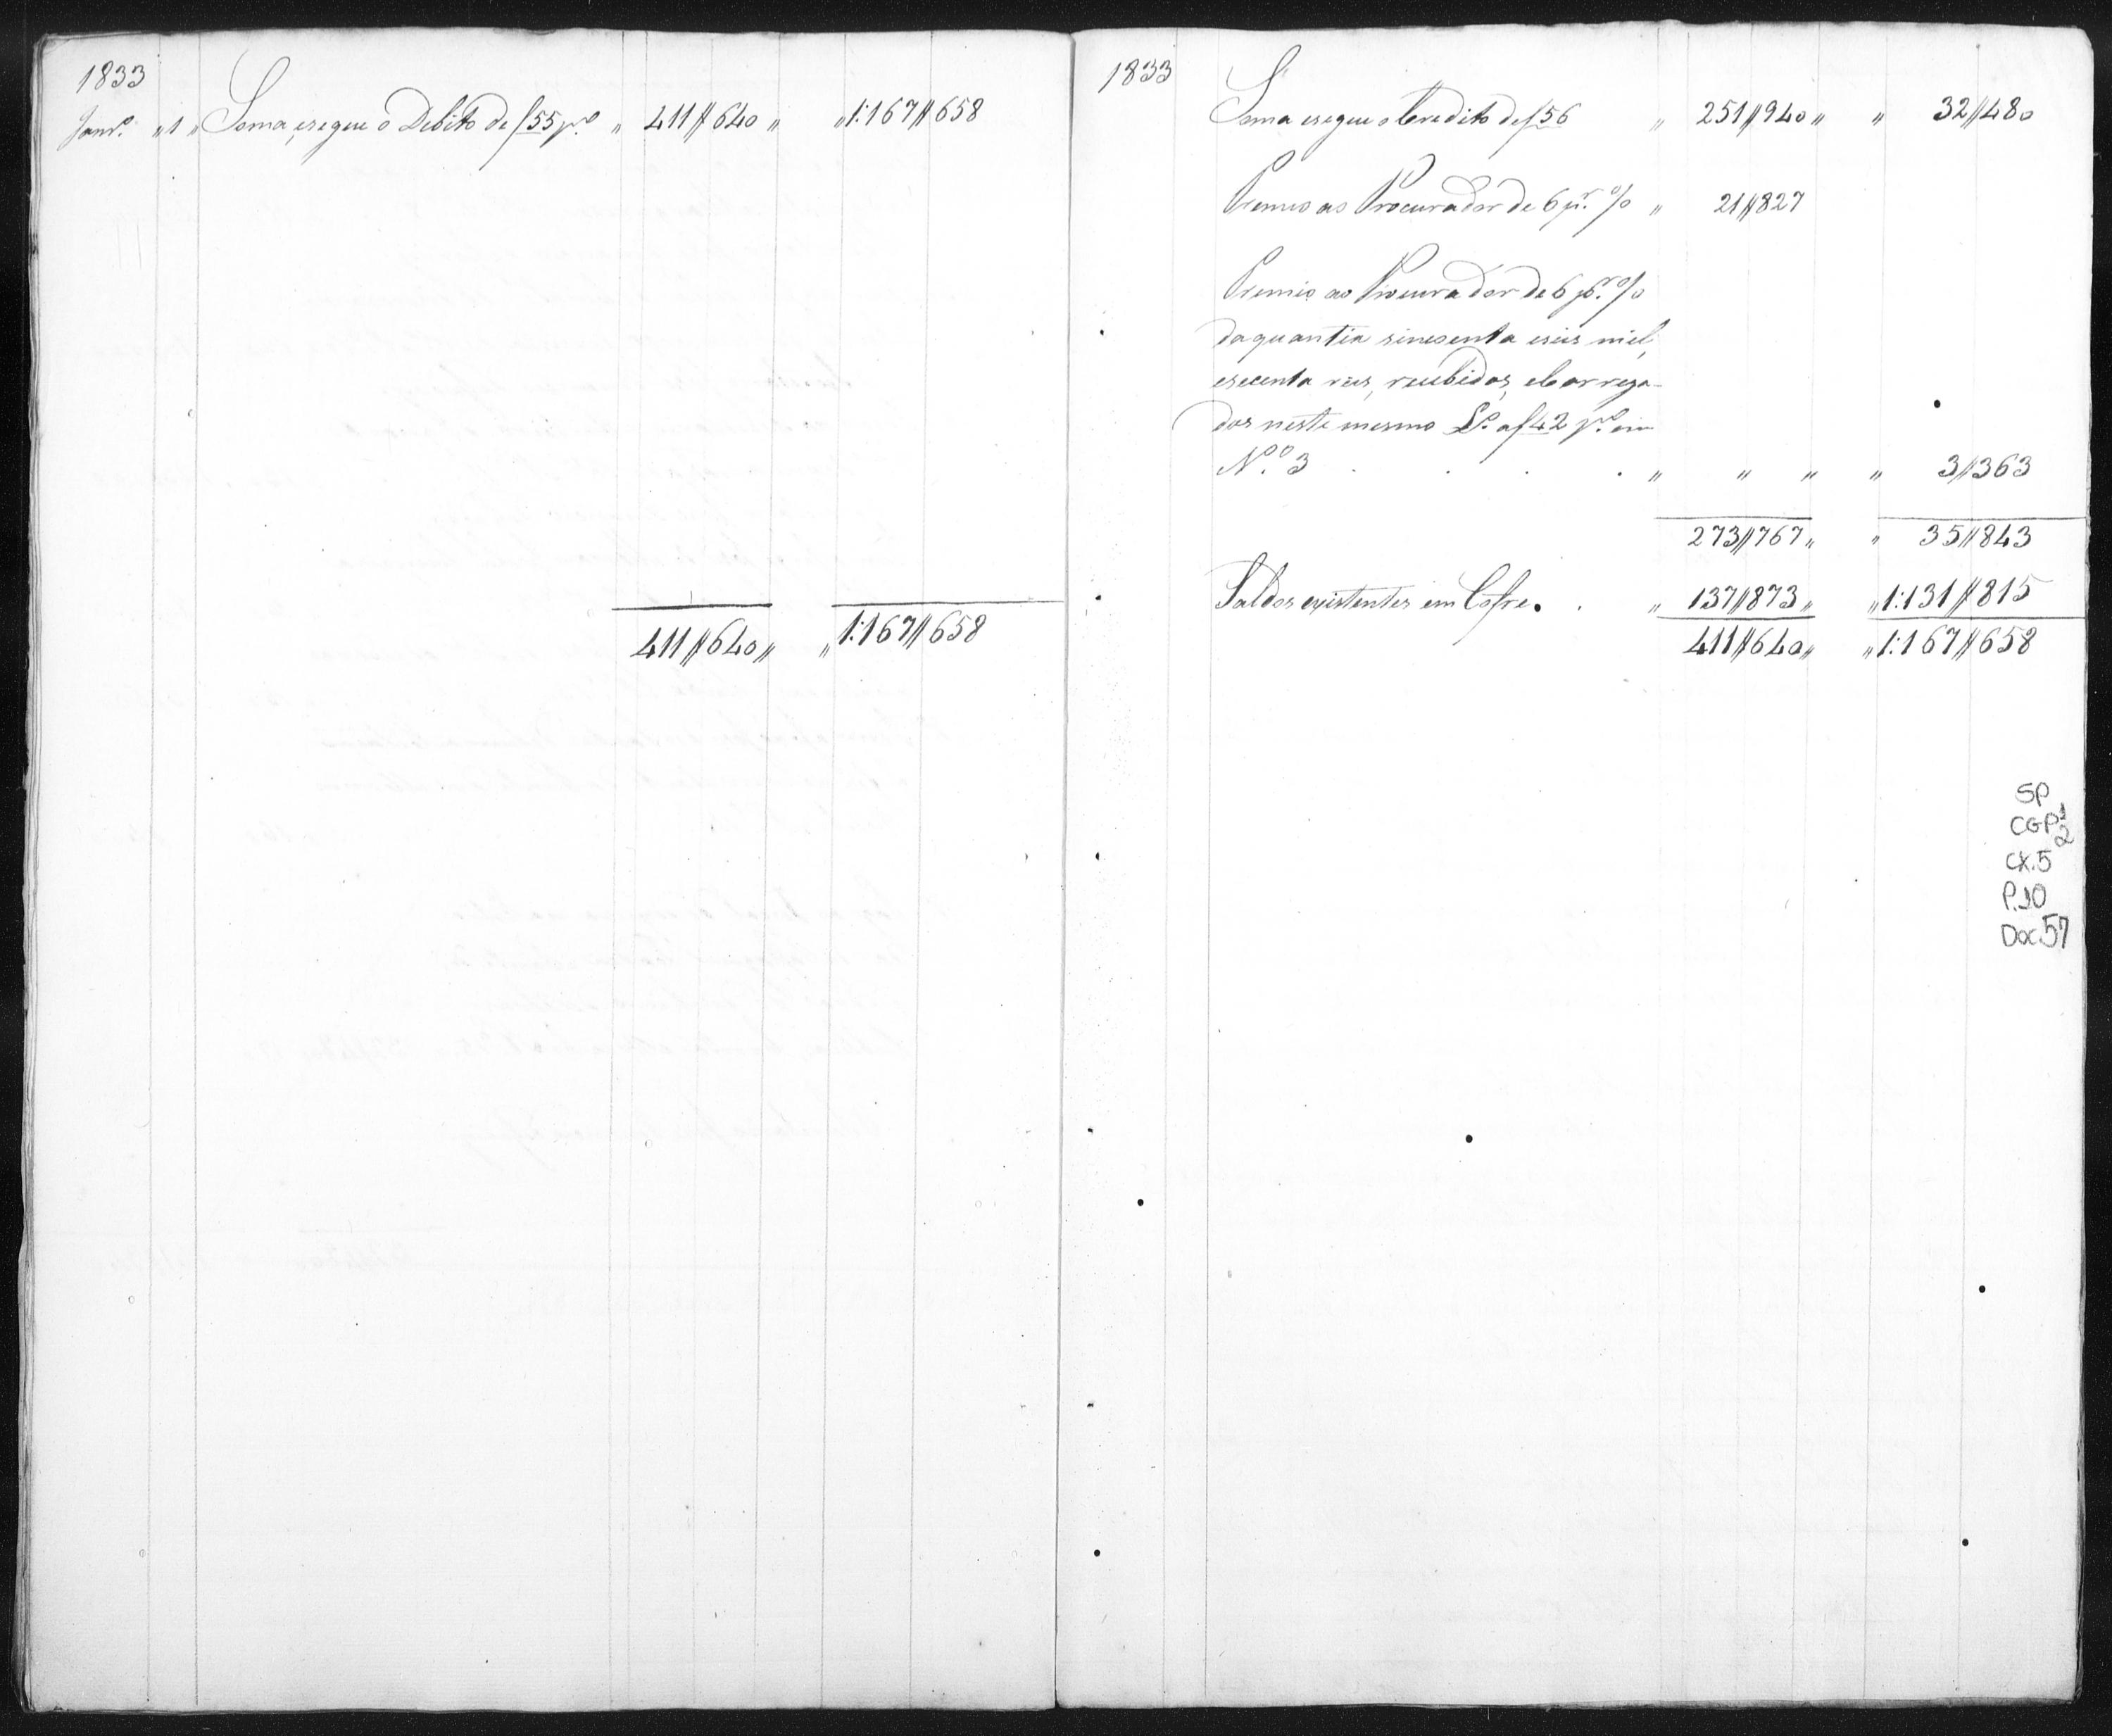 1833
Janr.º "1" Soma, esegue o Debito de f 55 p.º " 411//640 " "1:167//658
411//640 " "1:167//658
1833
Soma esegue o Credito de f 56 " 251//940 " " 32//480
Premio ao Procurador de 6 pr. % " 21//827
Premio ao Procurador de 6 pr. %
daquantia sincoenta eseis miel,
esecenta reis, recebidos, eCarrega-
dos neste mesmo L.º af 42 p.º em
N.º 3 . . . . " " " " 3//363
273//767 " " 35//843
Saldos existentes em Cofre . . " 137//873 " "1:131//815
411//640 " "1:167//658
SP
CGP1
2
CX.5
P.10
Doc.57